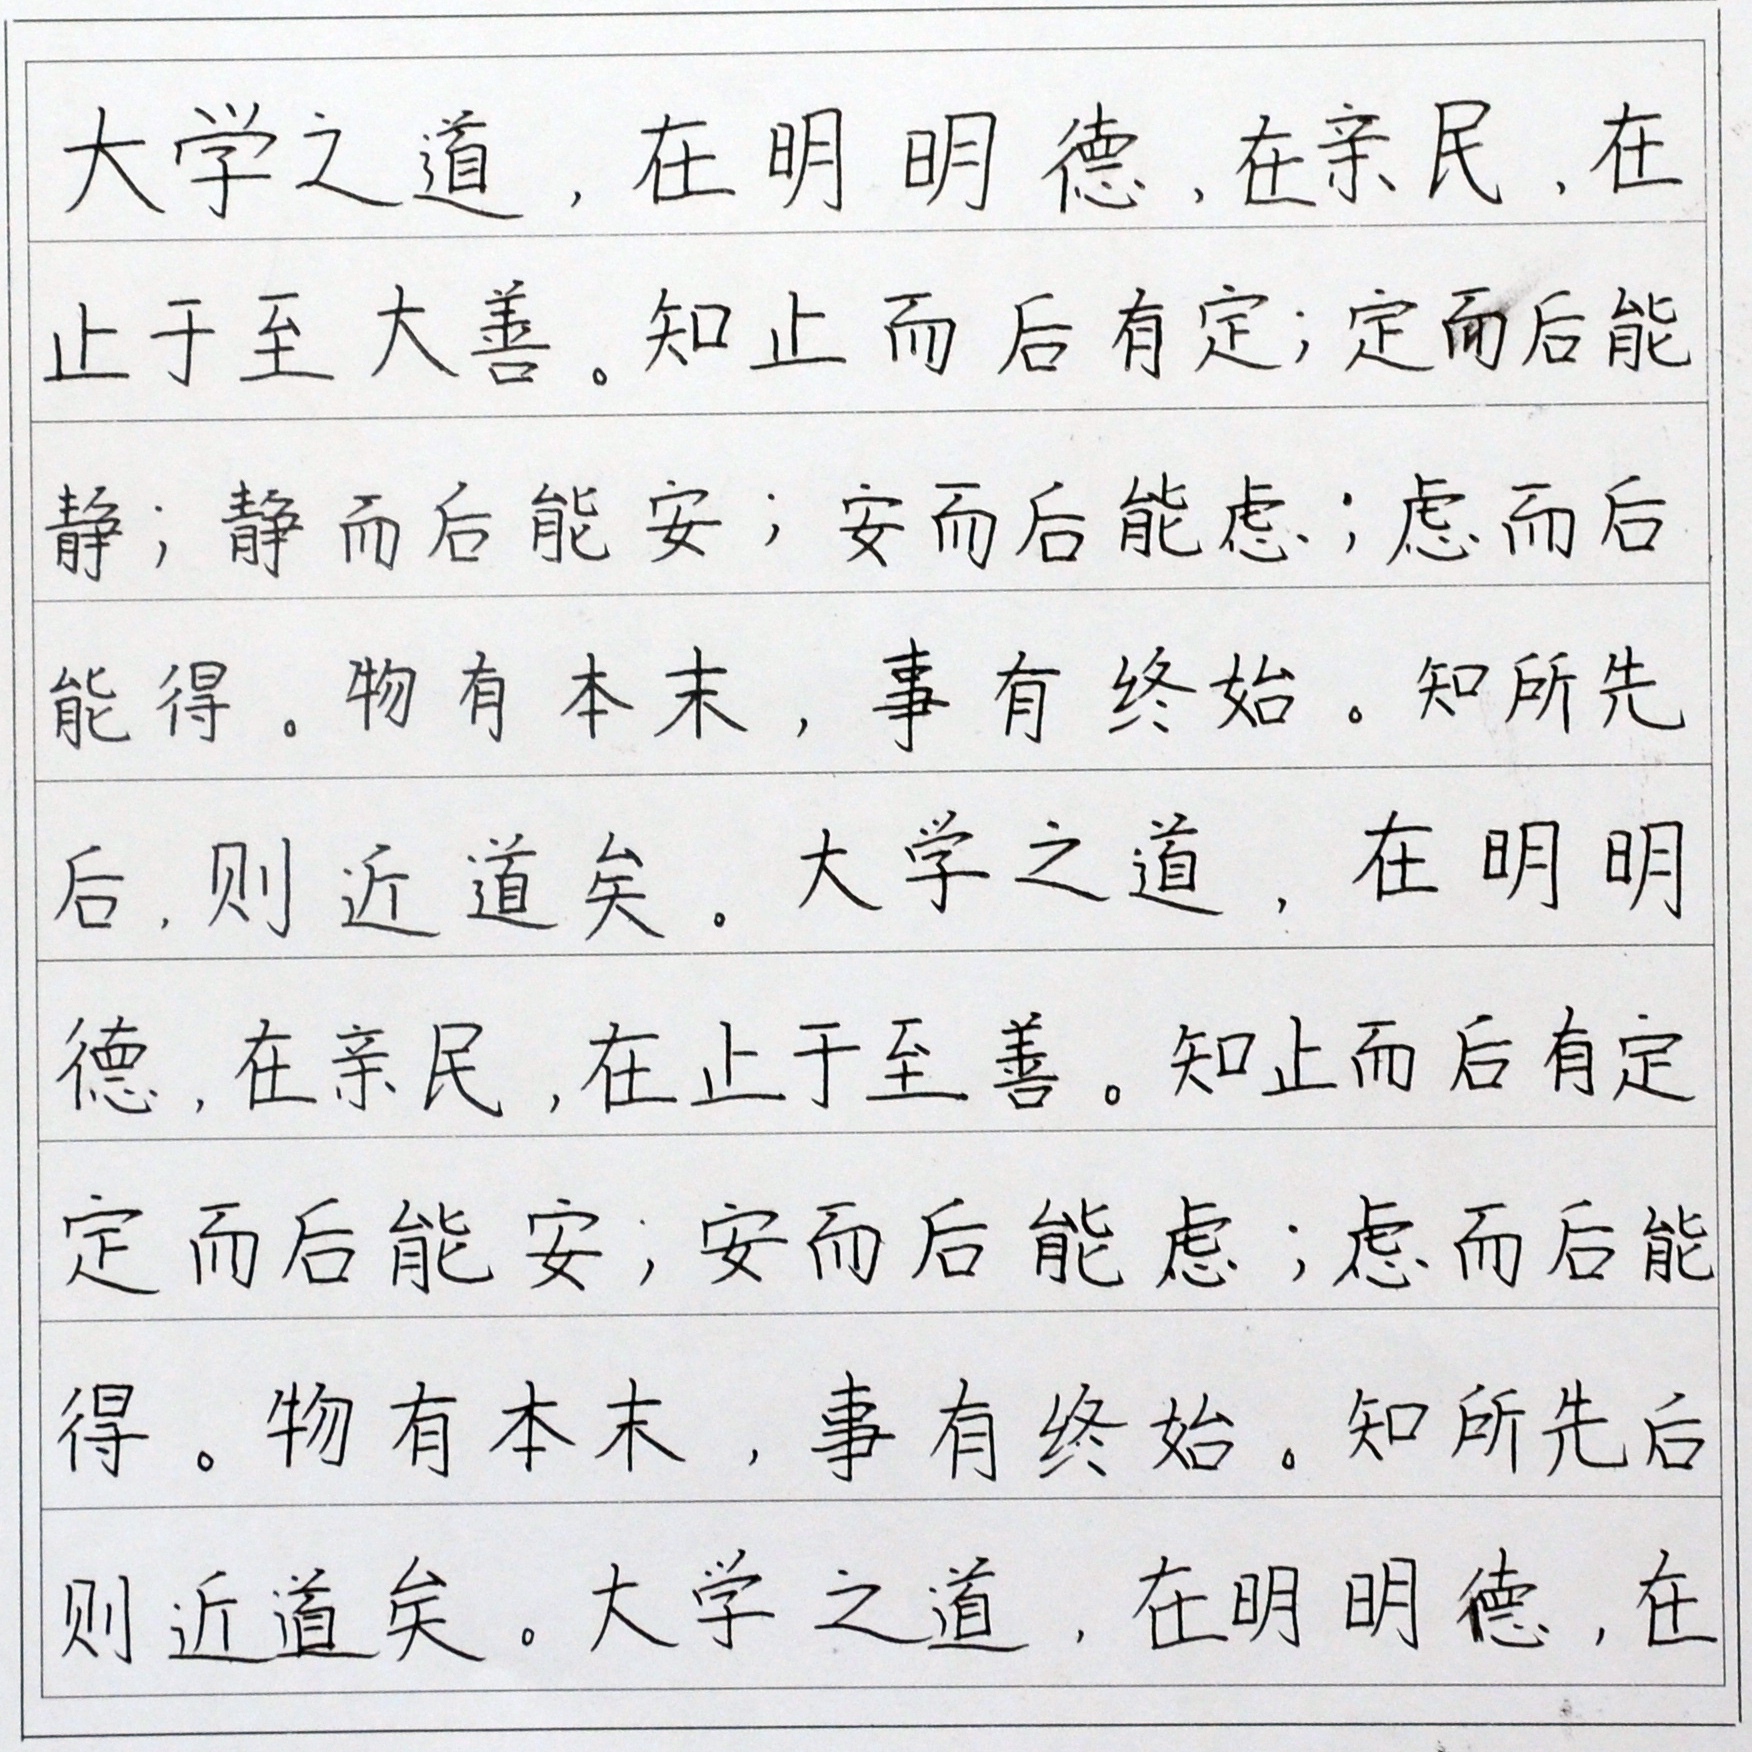 大学之道,在明明德,在亲民,在
止于至大善。知止而后有定;定而后能
静;静而后能安;安而后能虑;虑而后
能得。物有本末,事有终始。知所先
后,则近道矣。大学之道,在明明
德,在亲民,在止于至善。知止而后有定
定而后能安;安而后能虑;虑而后能
得。物有本末,事有终始。知所先后
则近道矣。大学之道,在明明德,在